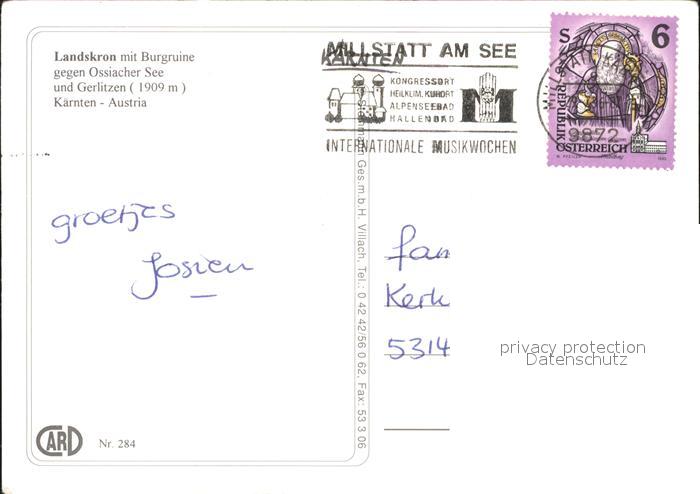 Landskron mit Burgruine
gegen Ossiacher See
und Gerlitzen ( 1909 m )
Kärnten - Austria
MILLSTATT AM SEE
KÄRNTEN
KONGRESSORT
HEILKLIM. KURORT
ALPENSEEBAD
HALLENBAD
M
INTERNATIONALE MUSIKWOCHEN
MILLSTATT
9872
S 6
REPUBLIK
ÖSTERREICH
groetjes
Josien
fam
Kerk
5314
privacy protection
Datenschutz
Ges.m.b.H. Villach, Tel.: 0 42 42/56 0 62, Fax: 53 3 06
CARD
Nr. 284